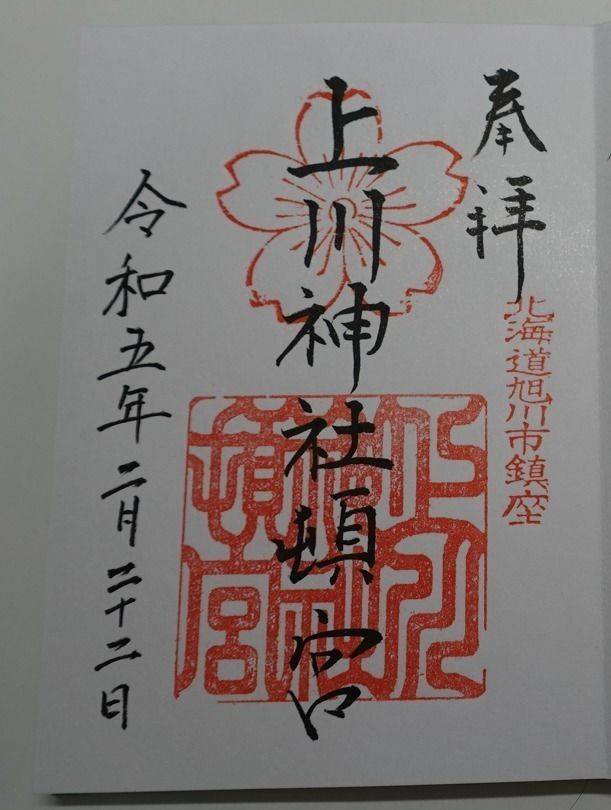 奉拝
北海道旭川市鎮座
上川神社頓宮
上川神社頓宮
令和五年二月二十二日